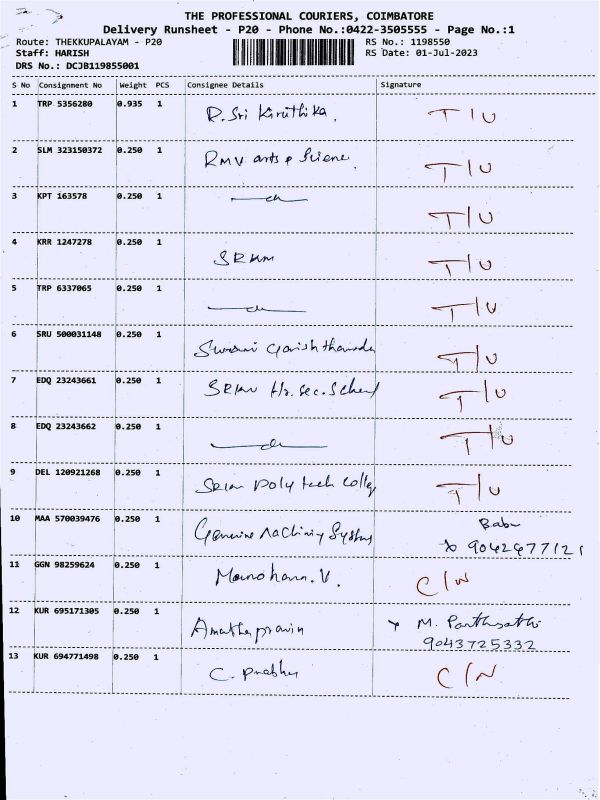 THE PROFESSIONAL COURIERS, COIMBATORE
Delivery Runsheet - P20 - Phone No.:0422-3505555 - Page No.:1
Route: THEKKUPALAYAM - P20 RS No.: 1198550
Staff: HARISH RS Date: 01-Jul-2023
DRS No.: DCJB119855001
S No Consignment No Weight PCS Consignee Details Signature
1 TRP 5356280 0.935 1 R. Sri Kiruthika. T/U
2 SLM 323150372 0.250 1 RMV arts & Science. T/U
3 KPT 163578 0.250 1 T/U
4 KRR 1247278 0.250 1 SRKM T/U
5 TRP 6337065 0.250 1 T/U
6 SRU 500031148 0.250 1 T/U
7 EDQ 23243661 0.250 1 Hr. Sec. School T/U
8 EDQ 23243662 0.250 1 T/U
9 DEL 120921268 0.250 1 Poly tech College T/U
10 MAA 570039476 0.250 1 Genuine Machinery Systems Babu
9042477121
11 GGN 98259624 0.250 1 Manoharan. V. C/N
12 KUR 695171305 0.250 1 M. Parthasathi
9043725332
13 KUR 694771498 0.250 1 C. Prabhu C/N